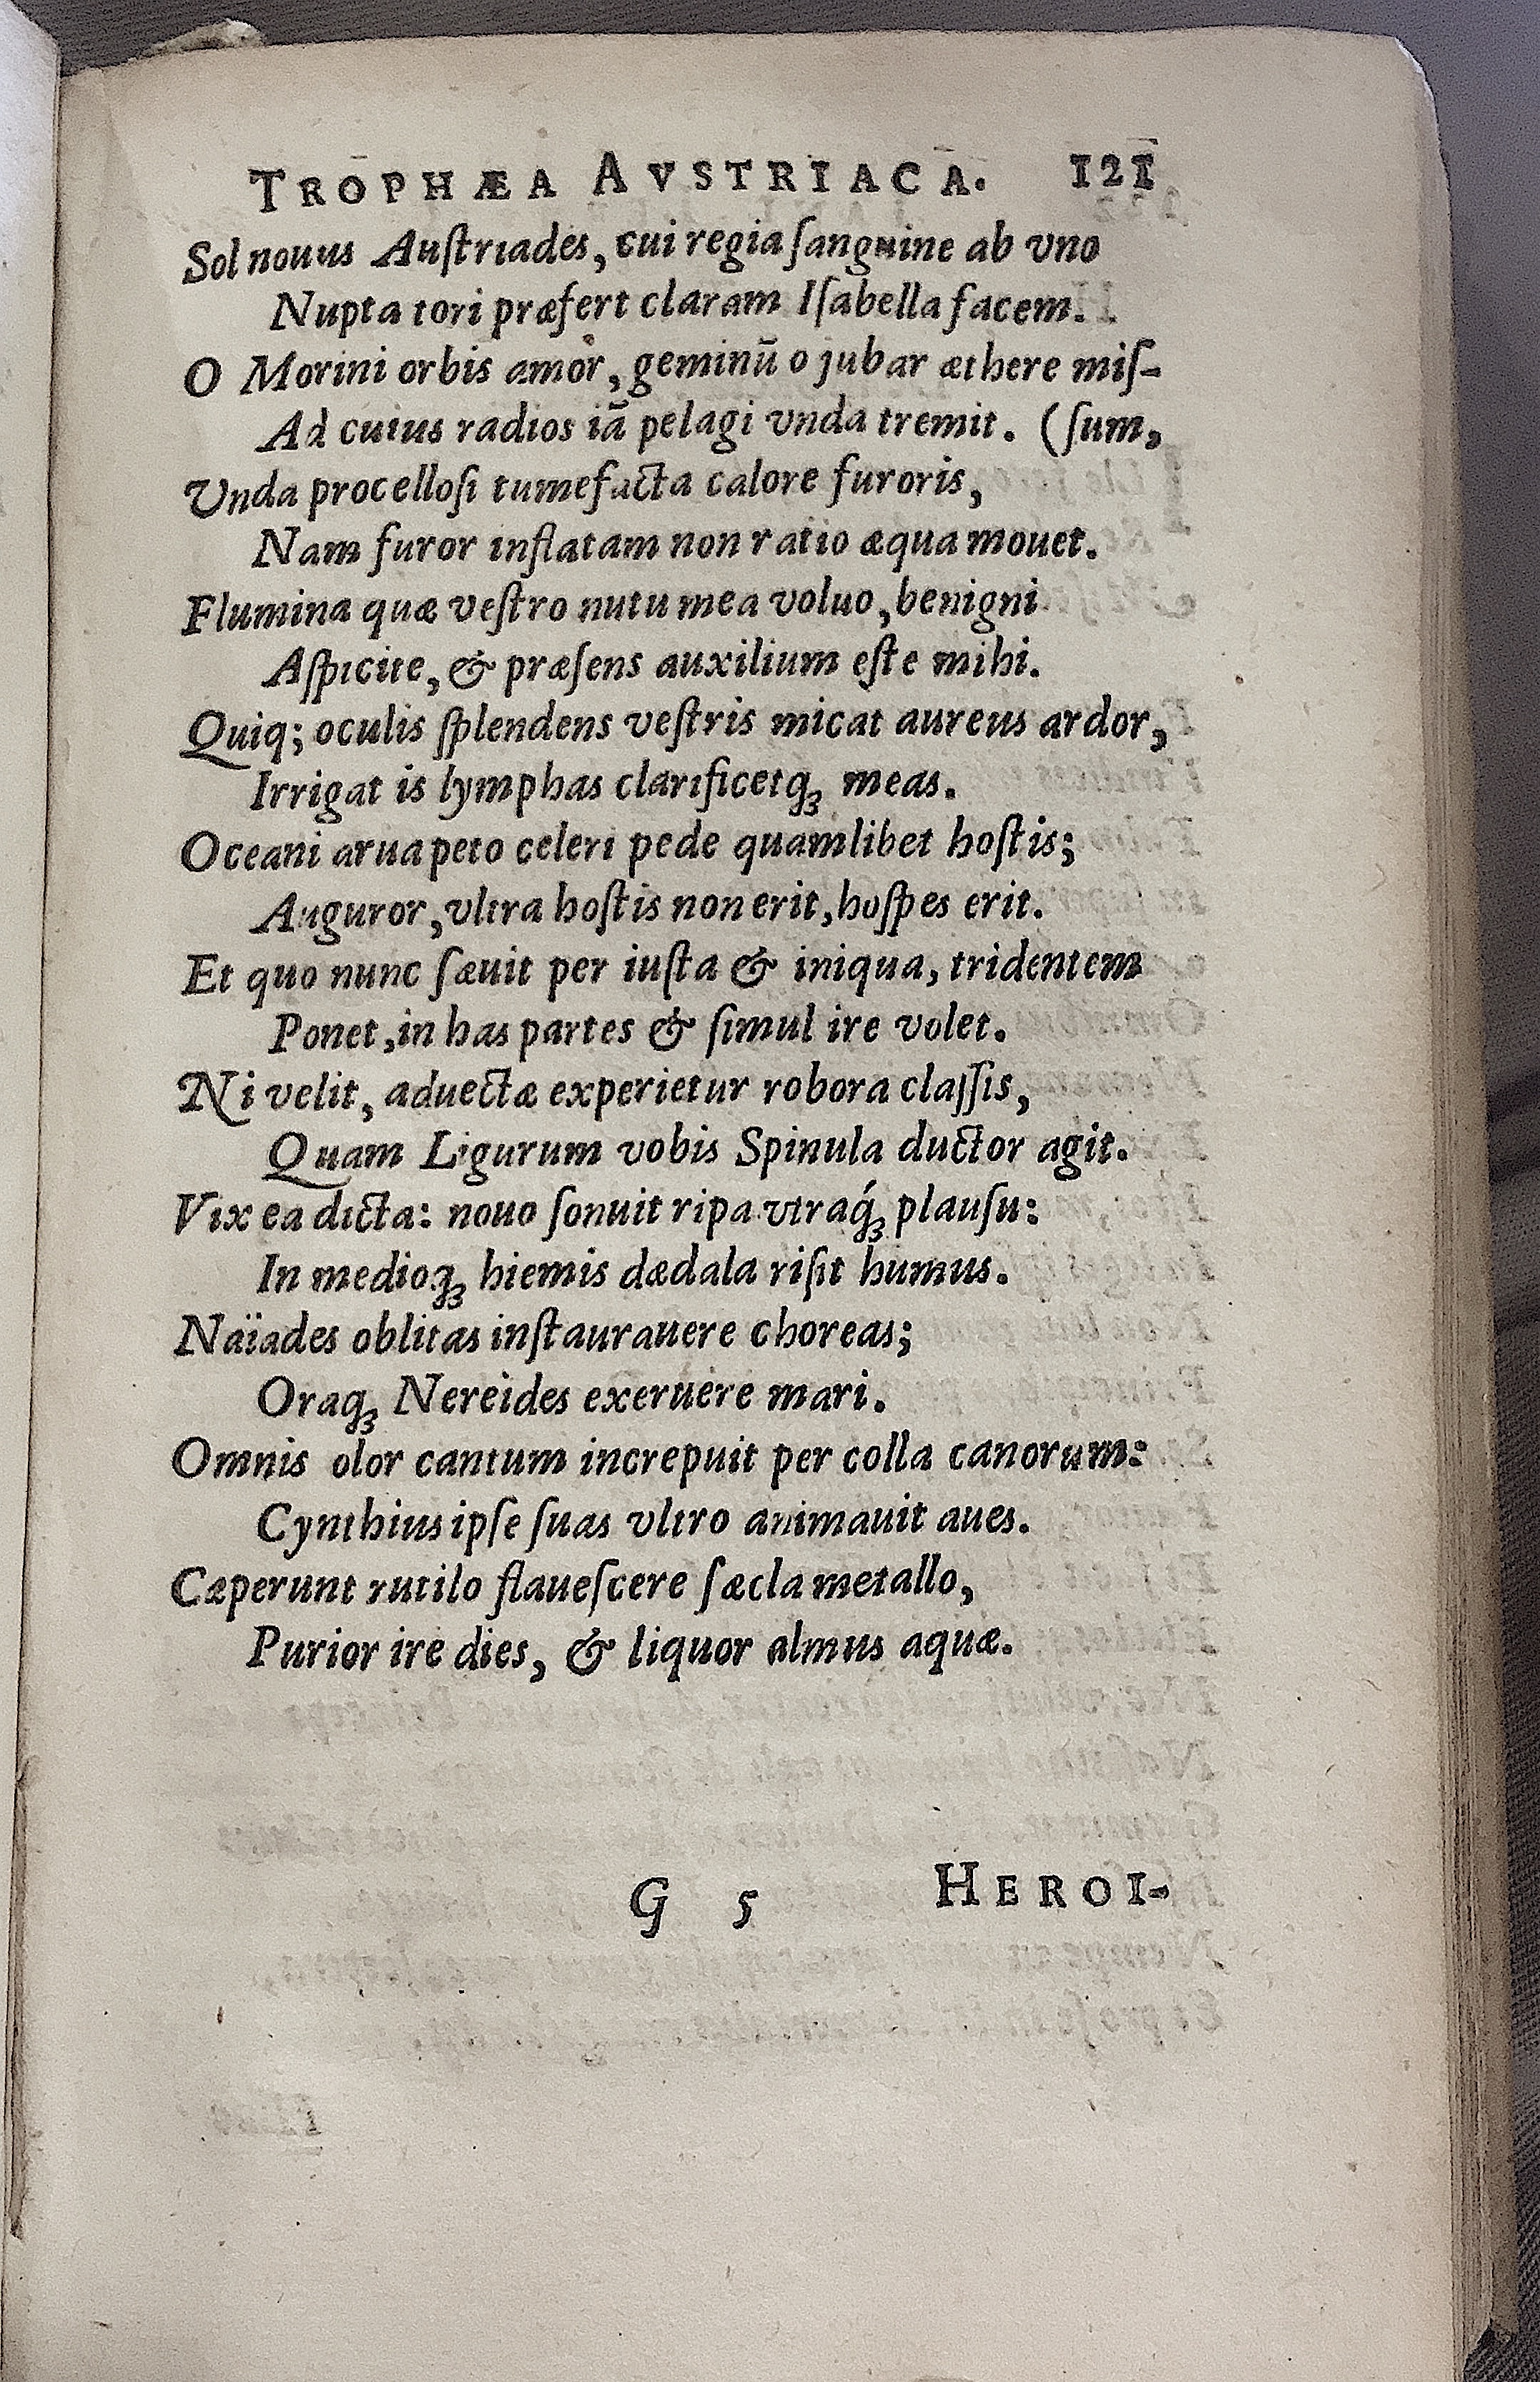 TROPHÆA AVSTRIACA. 121
Sol nouus Auſtriades, cui regia ſanguine ab vno
Nupta tori præfert claram Iſabella facem.
O Morini orbis amor, geminū o jubar æthere miſ-
Ad cuius radios iā pelagi vnda tremit. (ſum,
Vnda procelloſi tumefacta calore furoris,
Nam furor inflatam non ratio æqua mouet.
Flumina quæ veſtro nutu mea voluo, benigni
Aſpicite, & præſens auxilium eſte mihi.
Quiq; oculis ſplendens veſtris micat aureus ardor,
Irrigat is lymphas clarificetq́ꝫ meas.
Oceani arua peto celeri pede quamlibet hoſtis;
Auguror, vltra hoſtis non erit, hoſpes erit.
Et quo nunc ſæuit per iuſta & iniqua, tridentem
Ponet, in has partes & ſimul ire volet.
Ni velit, aduectæ experietur robora claſſis,
Quam Ligurum vobis Spinula ductor agit.
Vix ea dicta: nouo ſonuit ripa vtraq́ꝫ plauſu:
In medioqꝫ hiemis dædala riſit humus.
Naïades oblitas inſtaurauere choreas;
Oraqꝫ Nereides exeruere mari.
Omnis olor cantum increpuit per colla canorum:
Cynthius ipſe ſuas vltro animauit aues.
Cæperunt rutilo flaueſcere ſæcla metallo,
Purior ire dies, & liquor almus aquæ.
G 5 HEROI-